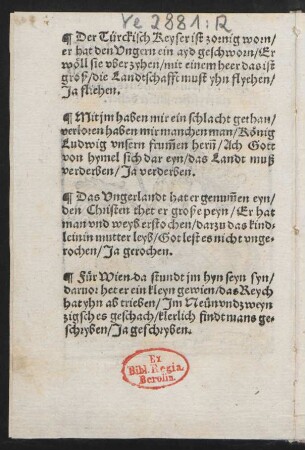 Ye 2881:R
¶ Der Türckisch Keyser ist zornig worn/
er hat den Vngern ein ayd geschworn/Er
wöll sie vberzyhen/mit einem heer das ist
groß/die Landtschafft must yhn flyehen/
Ja fliehen.
¶ Mit jm haben mir ein schlacht gethan/
verloren haben mir manchen man/König
Ludwig vnsern frummen herñ/Ach Gott
von hymel sich dar eyn/das Landt muß
verderben/Ja verderben.
¶ Das Vngerlandt hat er genummen eyn/
den Christen thet er grosse peyn/Er hat
man vnd weyb erstochen/darzu das kind-
lein in mutter leyb/Got lest es nicht vnge-
rochen/Ja gerochen.
¶ Für Wien da stundt jm hyn seyn syn/
daruor het er ein kleyn gewien/das Reych
hat yhn ab trieben/Im Neün vnd zweyn
zigsch es geschach/klerlich findt mans ge-
schryben/Ja geschryben.
Ex
Bibl. Regia
Berolin.